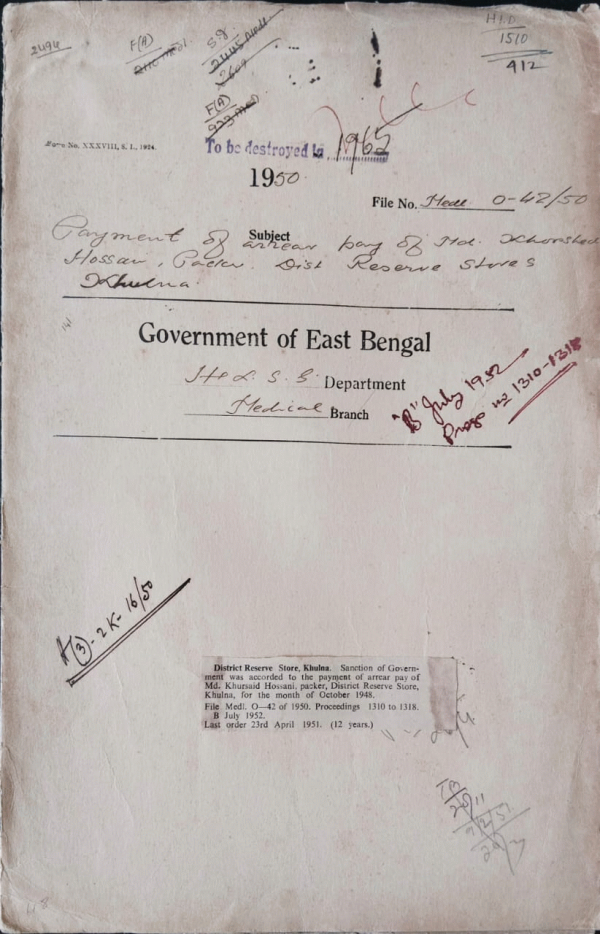 2494
F(A)
S.g.
2609
F(A)
H.D
1510
912
Form No. XXXVIII, S. I., 1924.
To be destroyed in 1965
1950.
File No. Medl. O-42/50
Subject
Payment of arrear pay of Md. Khorshed
Hossain, Packer. Dist Reserve Stores
Khulna.
Government of East Bengal
H & L. S. G. Department
Medical Branch
"B" July 1952
Progs no 1310-1318
A(3)-2K-16/50
District Reserve Store, Khulna. Sanction of Govern-
ment was accorded to the payment of arrear pay of
Md. Khursaid Hossani, packer, District Reserve Store,
Khulna, for the month of October 1948.
File Medl. O—42 of 1950. Proceedings 1310 to 1318.
B July 1952.
Last order 23rd April 1951. (12 years.)